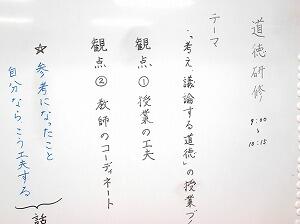 道徳研修 9:00~10:15
テーマ
・「考え議論する道徳」の授業づ
観点① 授業の工夫
観点② 教師のコーディネート
☆ 参考になったこと
自分ならこう工夫する
話